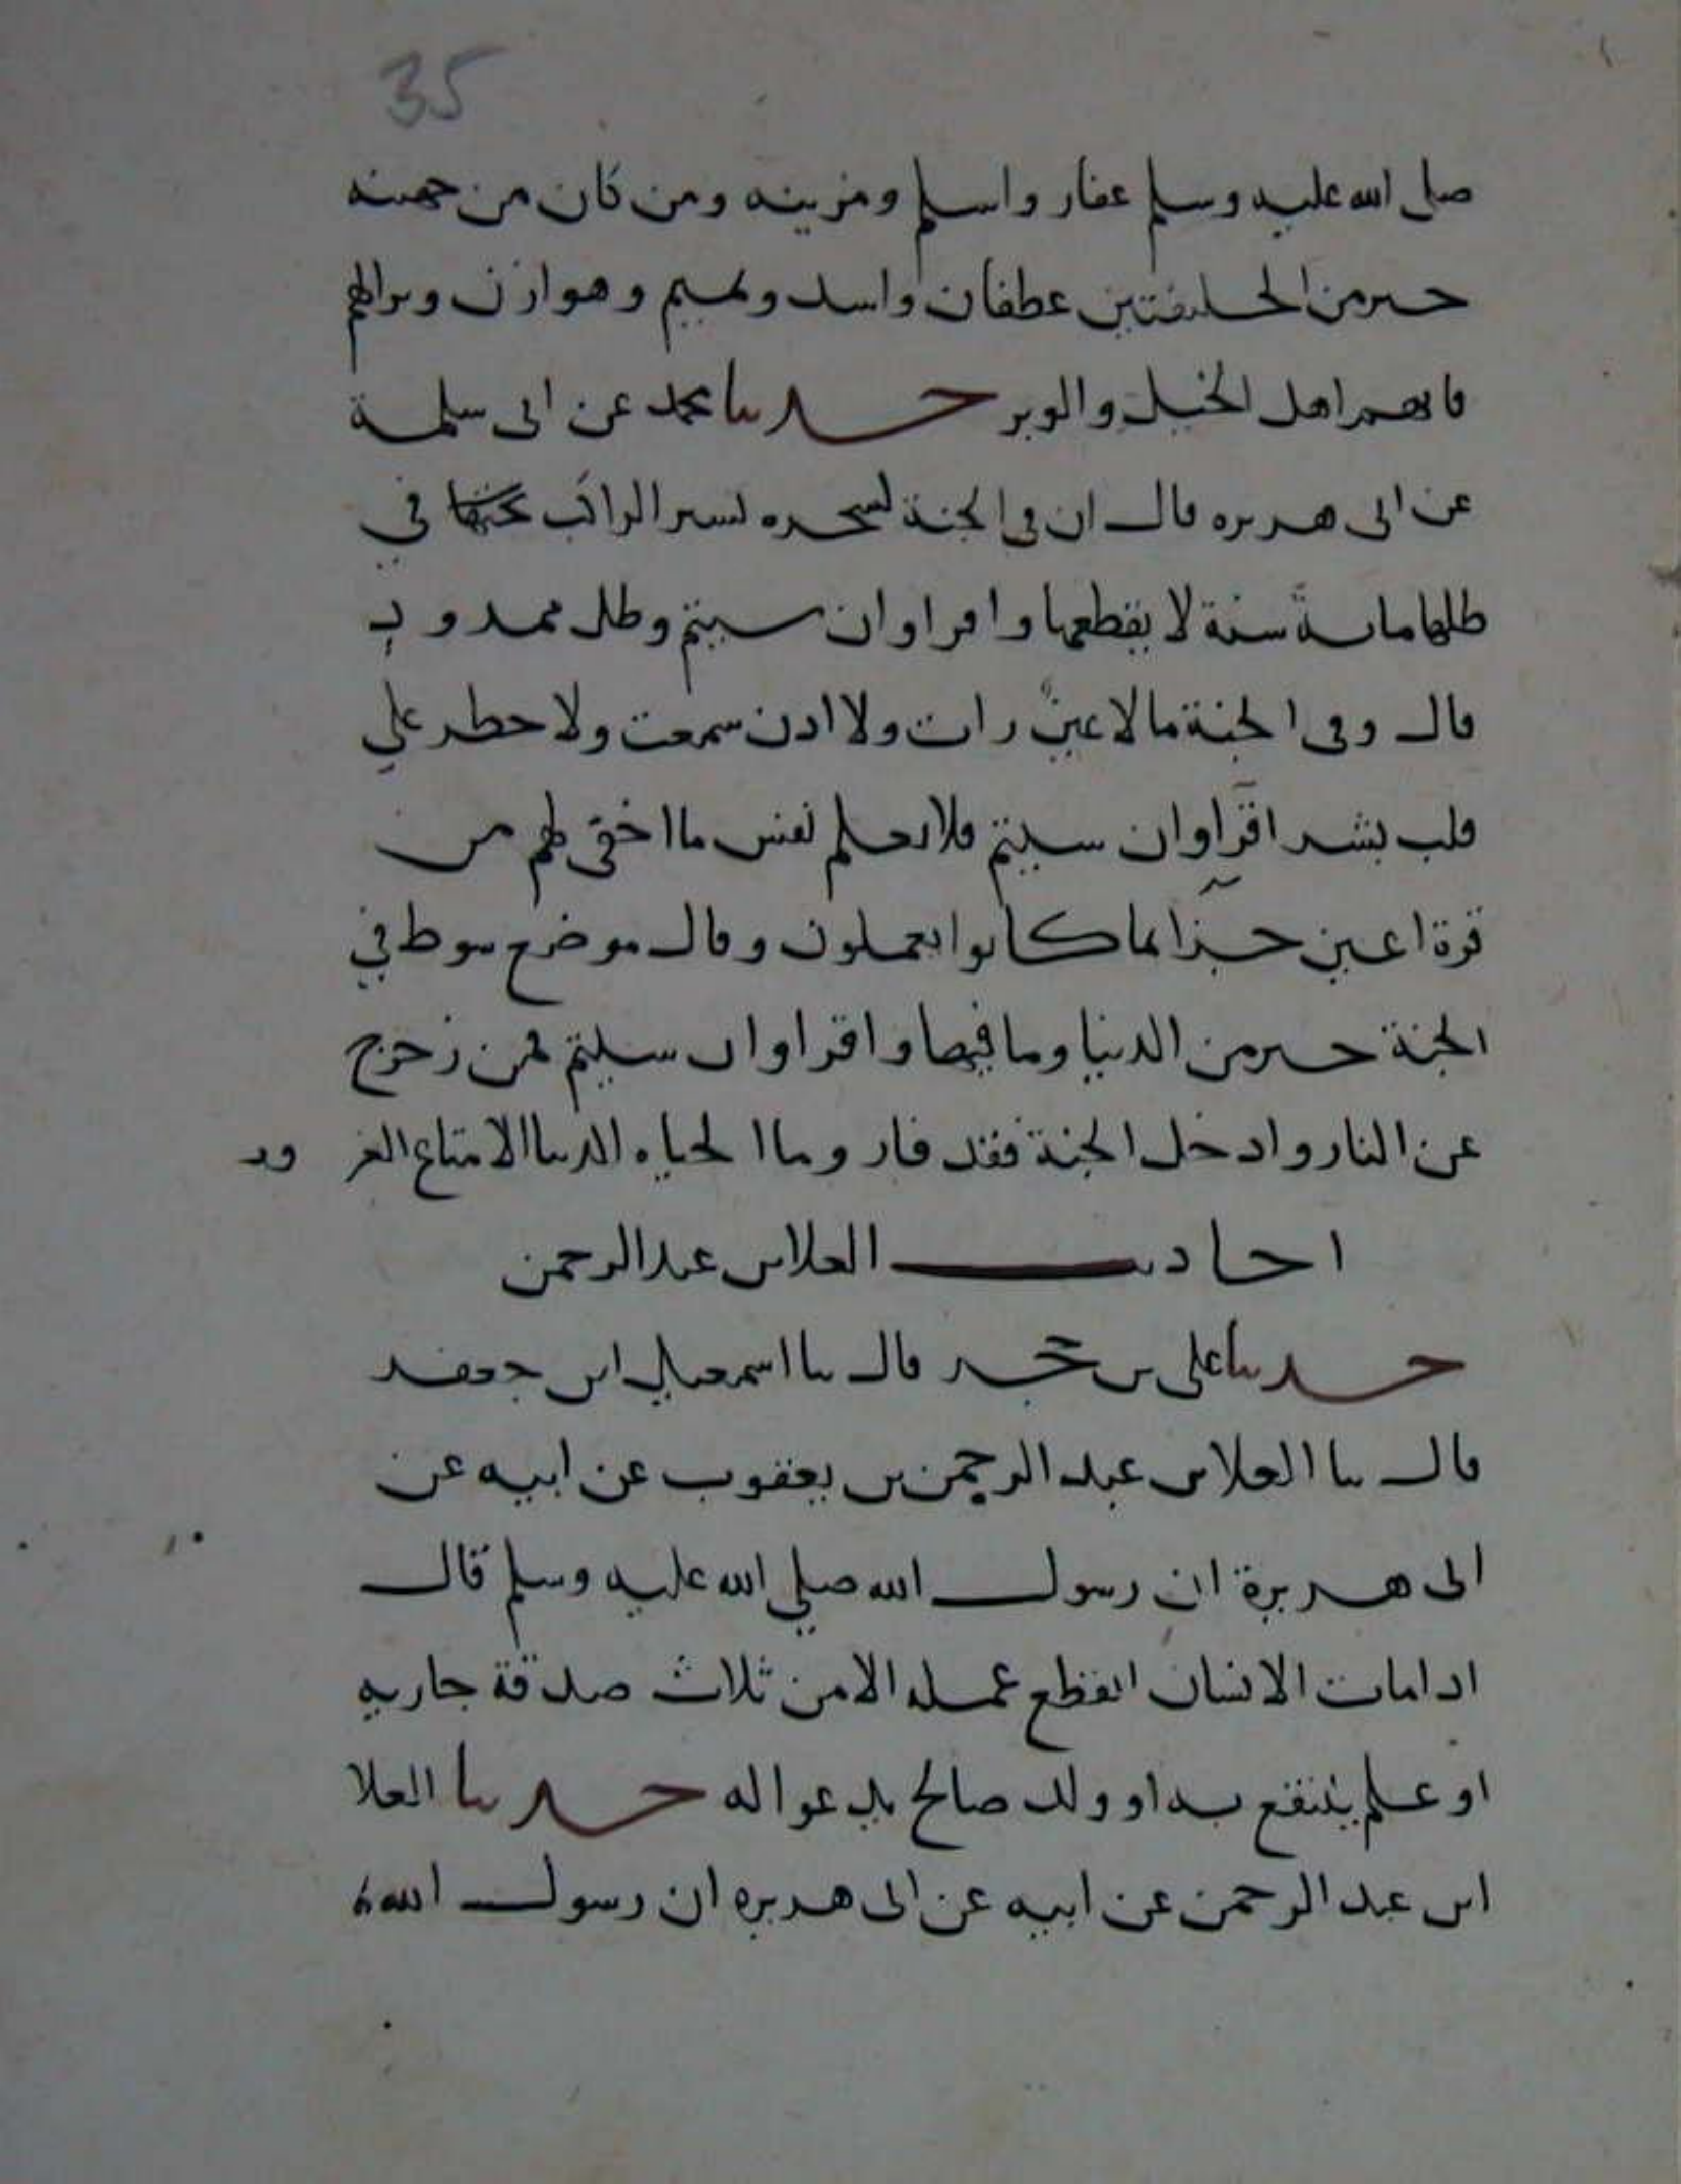 35
صلى الله عليه وسلم غفار واسلم ومزينه ومن كان من جهينه
خير من الحليفتين غطفان واسد وتميم وهوازن
فانهم اهل الخيل والوبر حدثنا محمد عن ابى سلمة
عن ابى هريره قال ان فى الجنة لشجره يسير الراكب تحتها في
ظلها ماية سنة لا يقطعها واقراوا ان شيتم وظل ممدود
قال وفى الجنة ما لا عين رات ولا اذن سمعت ولا خطر علي
قلب بشر اقراوا ان شيتم فلا تعلم نفس ما اخفى لهم من
قرة اعين جزا بما كانوا يعملون وقال موضع سوط في
الجنة خير من الدنيا وما فيها واقراوا ان شيتم فمن زحزح
عن النار وادخل الجنة فقد فاز وما الحياه الدنيا الا متاع الغرور
احاديث العلا بن عبد الرحمن
حدثنا على بن حجر قال ثنا اسمعيل ابن جعفر
قال ثنا العلا بن عبد الرحمن بن يعقوب عن ابيه عن
ابى هريرة ان رسول الله صلي الله عليه وسلم قال
اذا مات الانسان انقطع عمله الا من ثلاث صدقة جاريه
او علم ينتفع به او ولد صالح يدعوا له حدثنا العلا
ابن عبد الرحمن عن ابيه عن ابى هريره ان رسول الله